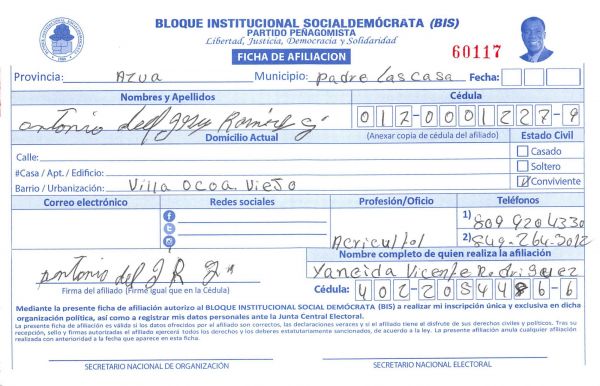 BLOQUE INSTITUCIONAL SOCIALDEMÓCRATA (BIS)
PARTIDO PEÑAGOMISTA
Libertad, Justicia, Democracia y Solidaridad
FICHA DE AFILIACION
60117
Provincia: Azua Municipio: Padre Las Casa Fecha:
Nombres y Apellidos
Cédula
antonio del Jesus Ramires
012-0001227-9
Domicilio Actual
(Anexar copia de cédula del afiliado)
Estado Civil
Calle:
Casado
#Casa / Apt. / Edificio:
Soltero
Barrio / Urbanización: Villa ocoa. Viejo
Conviviente
Correo electrónico
Redes sociales
Profesión/Oficio
Teléfonos
1) 809 920 4330
Acricultol
2) 849-264-3012
Nombre completo de quien realiza la afiliación
antonio del J R
Yaneida Vicente Rodriguez
Firma del afiliado (Firme igual que en la Cédula)
Cédula: 402-2054486-6
Mediante la presente ficha de afiliación autorizo al BLOQUE INSTITUCIONAL SOCIAL DEMÓCRATA (BIS) a realizar mi inscripción única y exclusiva en dicha
organización política, así como a registrar mis datos personales ante la Junta Central Electoral.
La presente ficha de afiliación es válida si los datos ofrecidos por el afiliado son correctos, las declaraciones veraces y si el afiliado tiene el disfrute de sus derechos civiles y políticos. Tras su
recepción, sello y firmas autorizadas el afiliado ejercerá todos los derechos y los deberes estatutariamente sancionados, de acuerdo a la ley. La presente afiliación anula cualquier afiliación
realizada con anterioridad a la fecha que aparece en esta ficha.
SECRETARIO NACIONAL DE ORGANIZACIÓN
SECRETARIO NACIONAL ELECTORAL